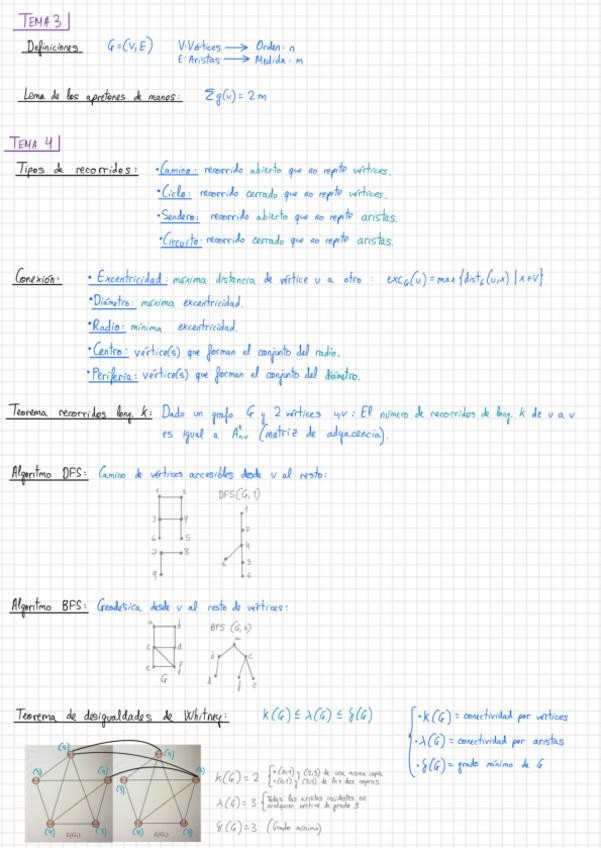 TEMA 3
Definiciones G=(V,E) V:Vértices → Orden: n
E: Aristas → Medida: m
Lema de los apretones de manos: Σg(v) = 2m
TEMA 4
Tipos de recorridos: • Camino: recorrido abierto que no repite vértices.
• Ciclo: recorrido cerrado que no repite vértices.
• Sendero: recorrido abierto que no repite aristas.
• Circuito: recorrido cerrado que no repite aristas.
Conexión: • Excentricidad: máxima distancia de vértice u a otro : exc_G(u) = max {dist_G(u,x) | x∈V}
• Diámetro: máxima excentricidad.
• Radio: mínima excentricidad.
• Centro: vértice(s) que forman el conjunto del radio.
• Periferia: vértice(s) que forman el conjunto del diámetro.
Teorema recorridos long. k: Dado un grafo G y 2 vértices u,v : El número de recorridos de long. k de u a v
es igual a (matriz de adyacencia).
Algoritmo DFS: Camino de vértices accesibles desde v al resto:
DFS(G,1)
Algoritmo BFS: Geodésica desde v al resto de vértices:
BFS (G,a)
G
Teorema de desigualdades de Whitney: k(G) ≤ λ(G) ≤ δ(G)
• k(G) = conectividad por vértices
• λ(G) = conectividad por aristas
• δ(G) = grado mínimo de G
k(G) = 2 de una misma copia
de las dos copias
λ(G) = 3 Todas las aristas incidentes en
cualquier vértice de grado 3
δ(G) = 3 (Grado mínimo)